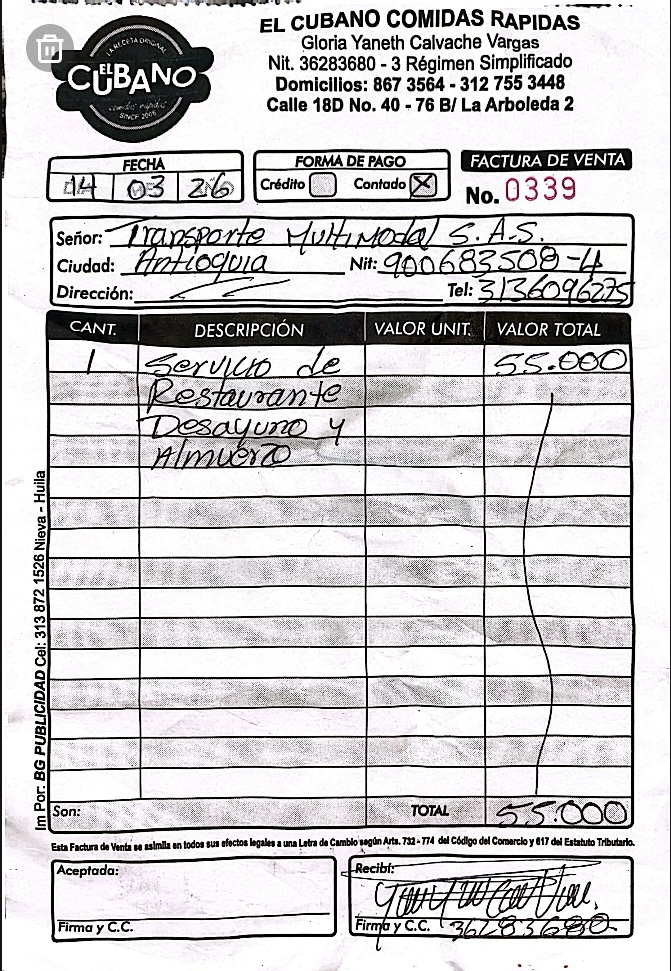 LA RECETA ORIGINAL
EL CUBANO
comidas rápidas
SINCE 2006
EL CUBANO COMIDAS RAPIDAS
Gloria Yaneth Calvache Vargas
Nit. 36283680 - 3 Régimen Simplificado
Domicilios: 867 3564 - 312 755 3448
Calle 18D No. 40 - 76 B/ La Arboleda 2
FECHA
14 03 26
FORMA DE PAGO
Crédito Contado X
FACTURA DE VENTA
No. 0339
Señor: Transporte Multimodal S.A.S.
Ciudad: Antioquia Nit: 900683508-4
Dirección: Tel: 3136096275
CANT. DESCRIPCIÓN VALOR UNIT. VALOR TOTAL
1 Servicio de 55.000
Restaurante
Desayuno y
Almuerzo
Son: TOTAL 55.000
Im Por: BG PUBLICIDAD Cel: 313 872 1526 Nieva - Huila
Esta Factura de Venta se asimila en todos sus efectos legales a una Letra de Cambio según Arts. 732 - 774 del Código del Comercio y 617 del Estatuto Tributario.
Aceptada:
Firma y C.C.
Recibí:
Firma y C.C. 36283680